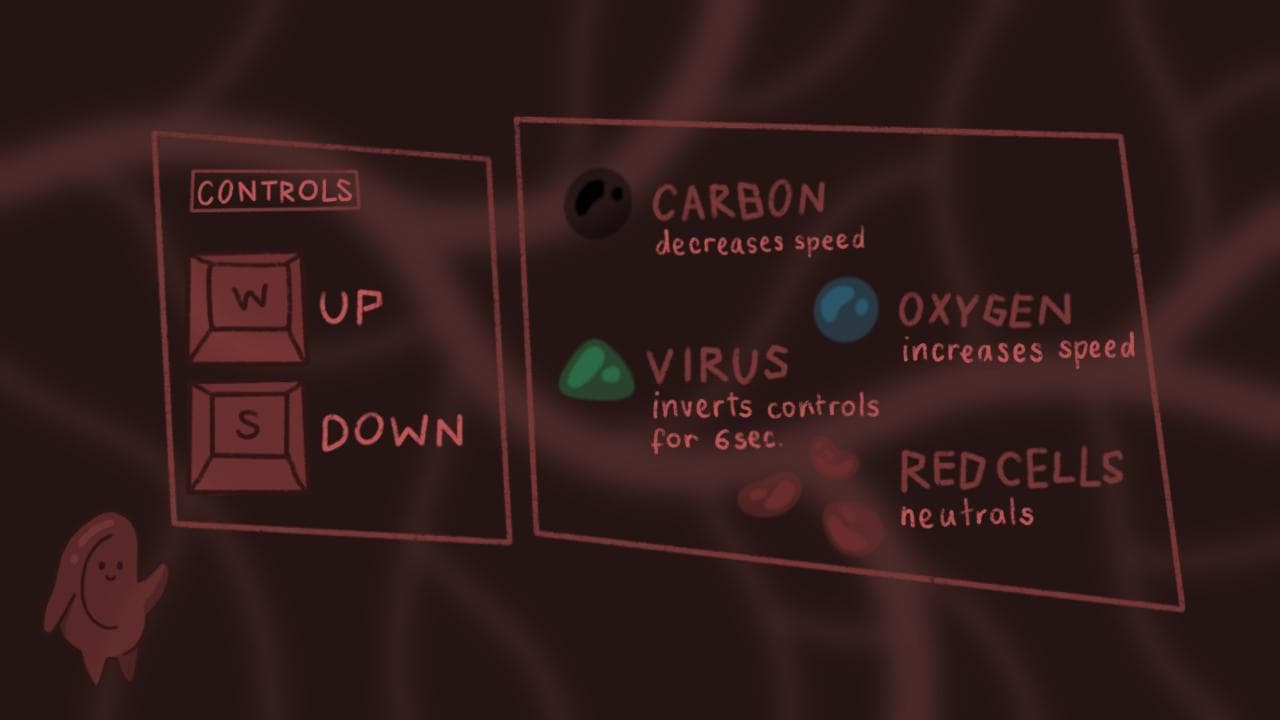 CONTROLS
W
UP
S
DOWN
CARBON
decreases speed
OXYGEN
increases speed
VIRUS
inverts controls
for 6sec.
RED CELLS
neutrals